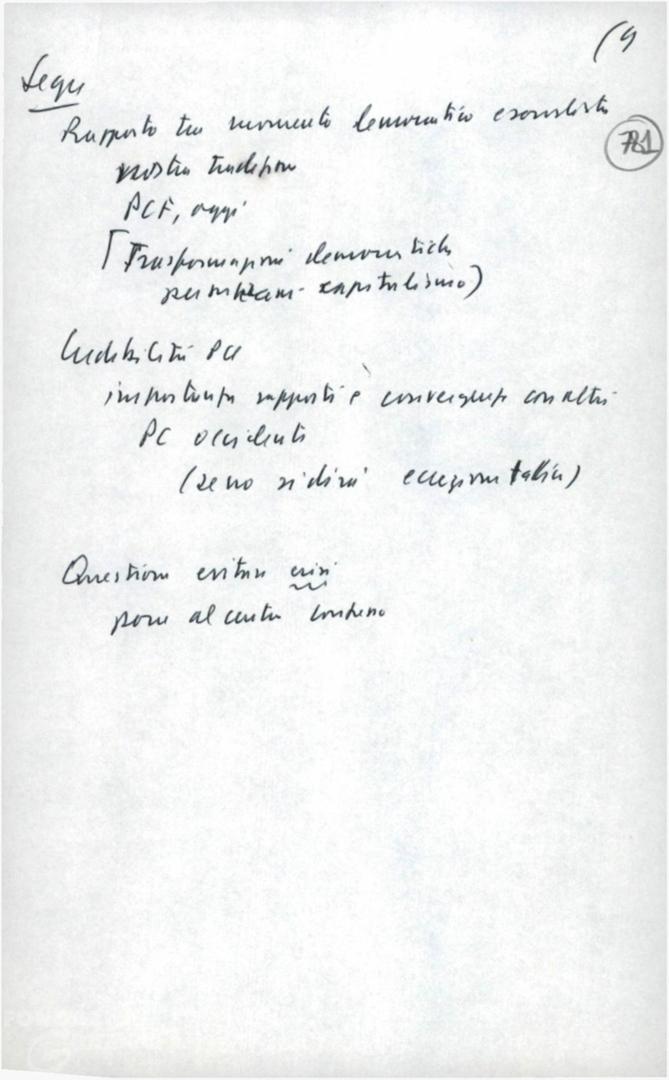 (9
Segre
781
Rapporto tra momento democratico e socialista
nostra tradizione
PCF, oggi
[Trasformazioni democratiche
capitalismo)
Credibilità PCI
importanza rapporti e convergenze con altri
PC occidente
(se no si dirà eccezione Italia)
Questione evitare crisi
pone al centro